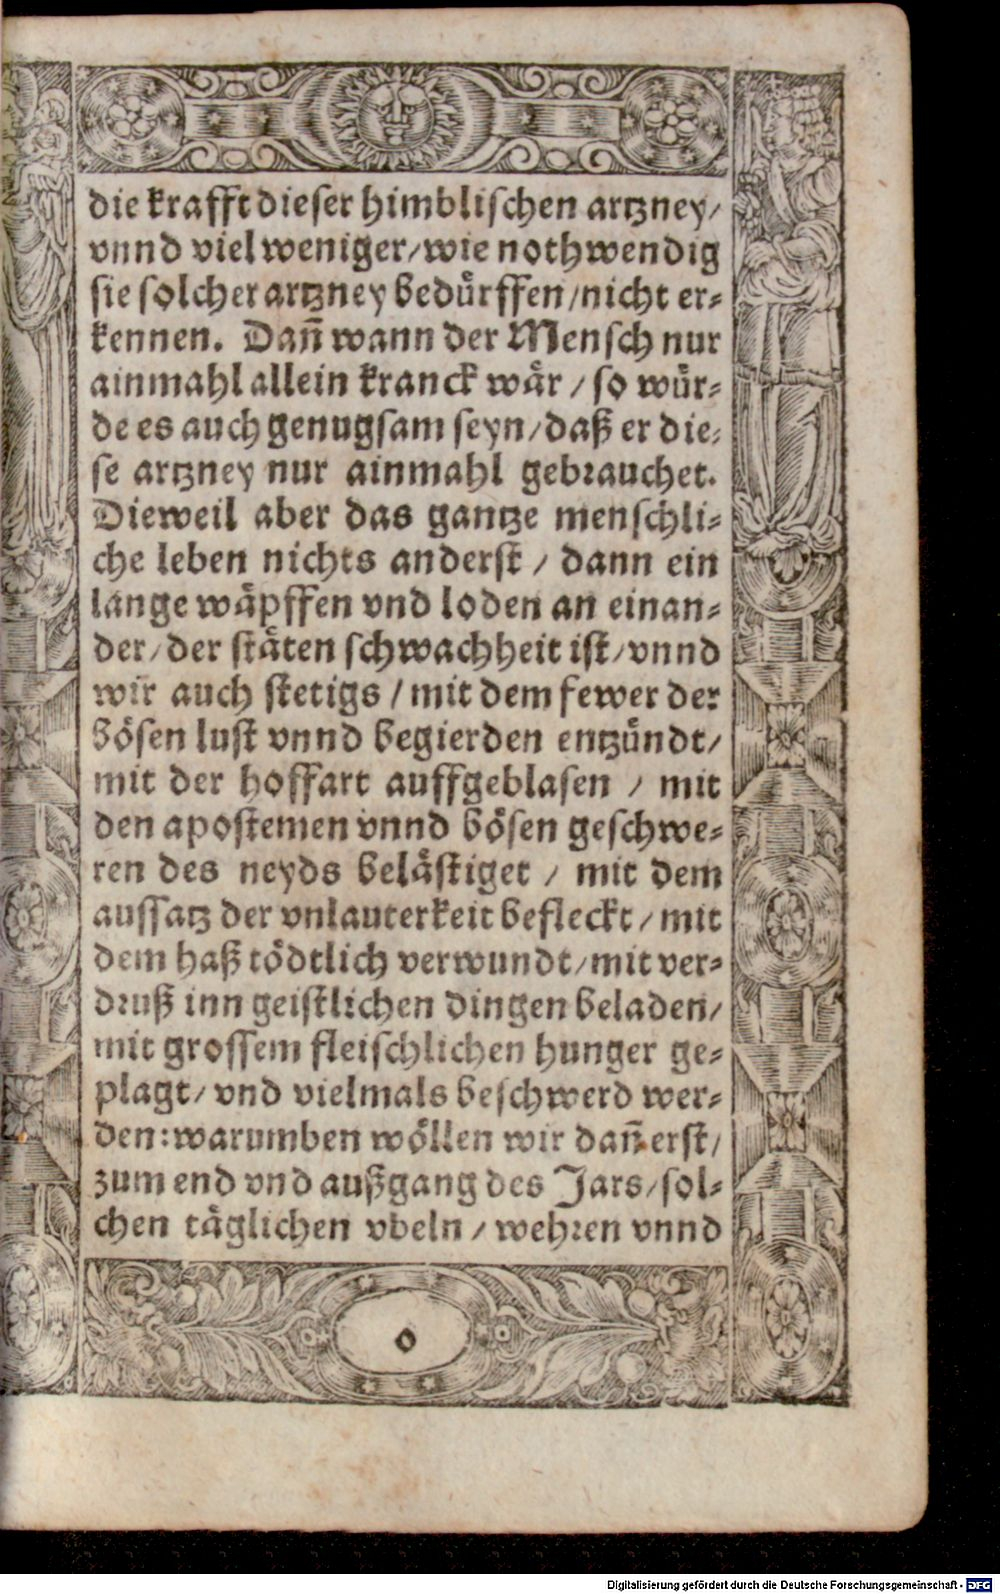 die krafft dieser himblischen artzney/
vnnd viel weniger/wie nothwendig
sie solcher artzney bedürffen/nicht er⸗
kennen. Dañ wann der Mensch nur
ainmahl allein kranck wär / so wür⸗
de es auch genugsam seyn/daß er die⸗
se artzney nur ainmahl gebrauchet.
Dieweil aber das gantze menschli⸗
che leben nichts anderst / dann ein
lange wäpffen vnd loden an einan⸗
der/der stäten schwachheit ist/vnnd
wir auch stetigs / mit dem fewer der
bösen lust vnnd begierden entzündt/
mit der hoffart auffgeblasen / mit
den apostemen vnnd bösen geschwe⸗
ren des neyds belästiget / mit dem
aussatz der vnlauterkeit befleckt/mit
dem haß tödtlich verwundt/mit ver⸗
druß inn geistlichen dingen beladen/
mit grossem fleischlichen hunger ge⸗
plagt/vnd vielmals beschwerd wer⸗
den:warumben wöllen wir dañ erst/
zum end vnd außgang des Jars/sol⸗
chen täglichen vbeln / wehren vnnd
o
Digitalisierung gefördert durch die Deutsche Forschungsgemeinschaft - DFG